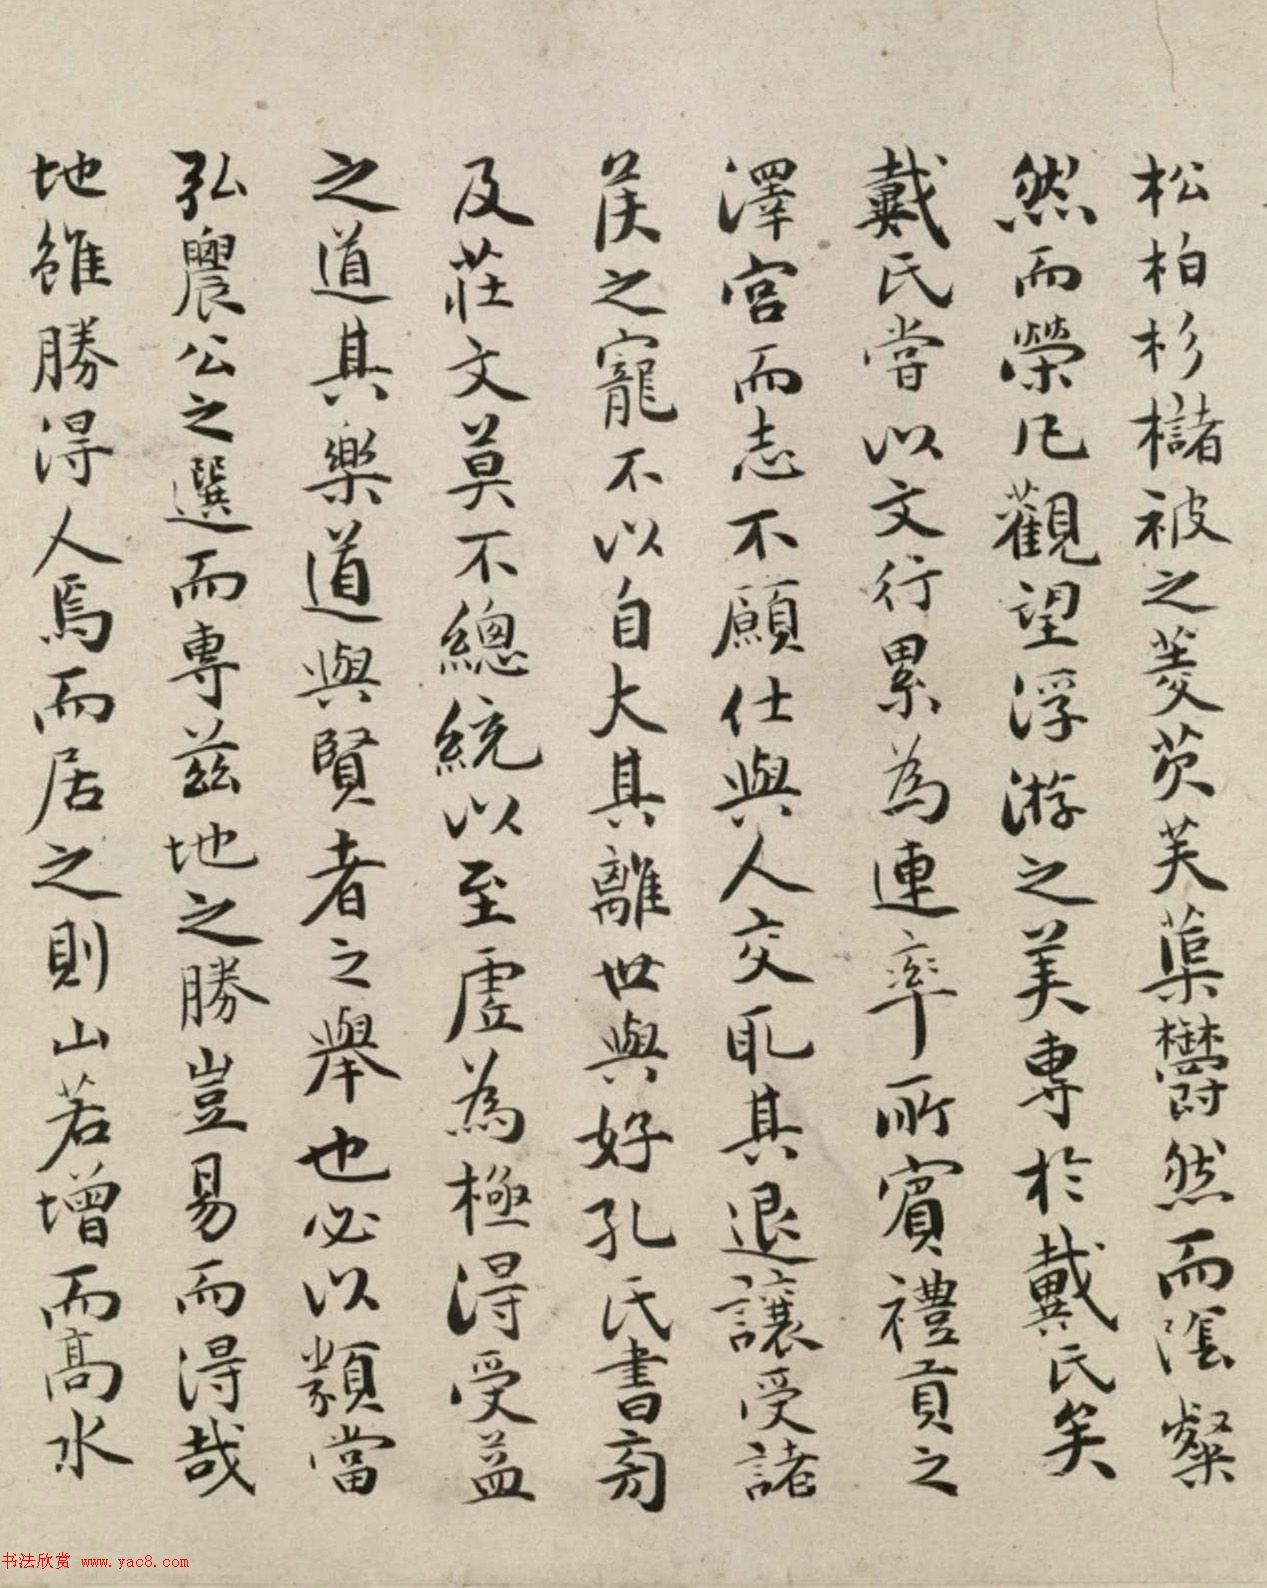 松柏杉櫧被之菱芡芙蕖欝然而陰粲
然而榮凡觀望浮游之美專於戴氏矣
戴氏嘗以文行累為連率所賓禮貢之
澤宮而志不願仕與人交取其退讓受諸
侯之寵不以自大其離世與好孔氏書旁
及莊文莫不總統以至虛為極得受益
之道其樂道與賢者之舉也必以類當
弘農公之選而專茲地之勝豈易而得哉
地雖勝得人焉而居之則山若增而高水
书法欣赏 www.yac8.com